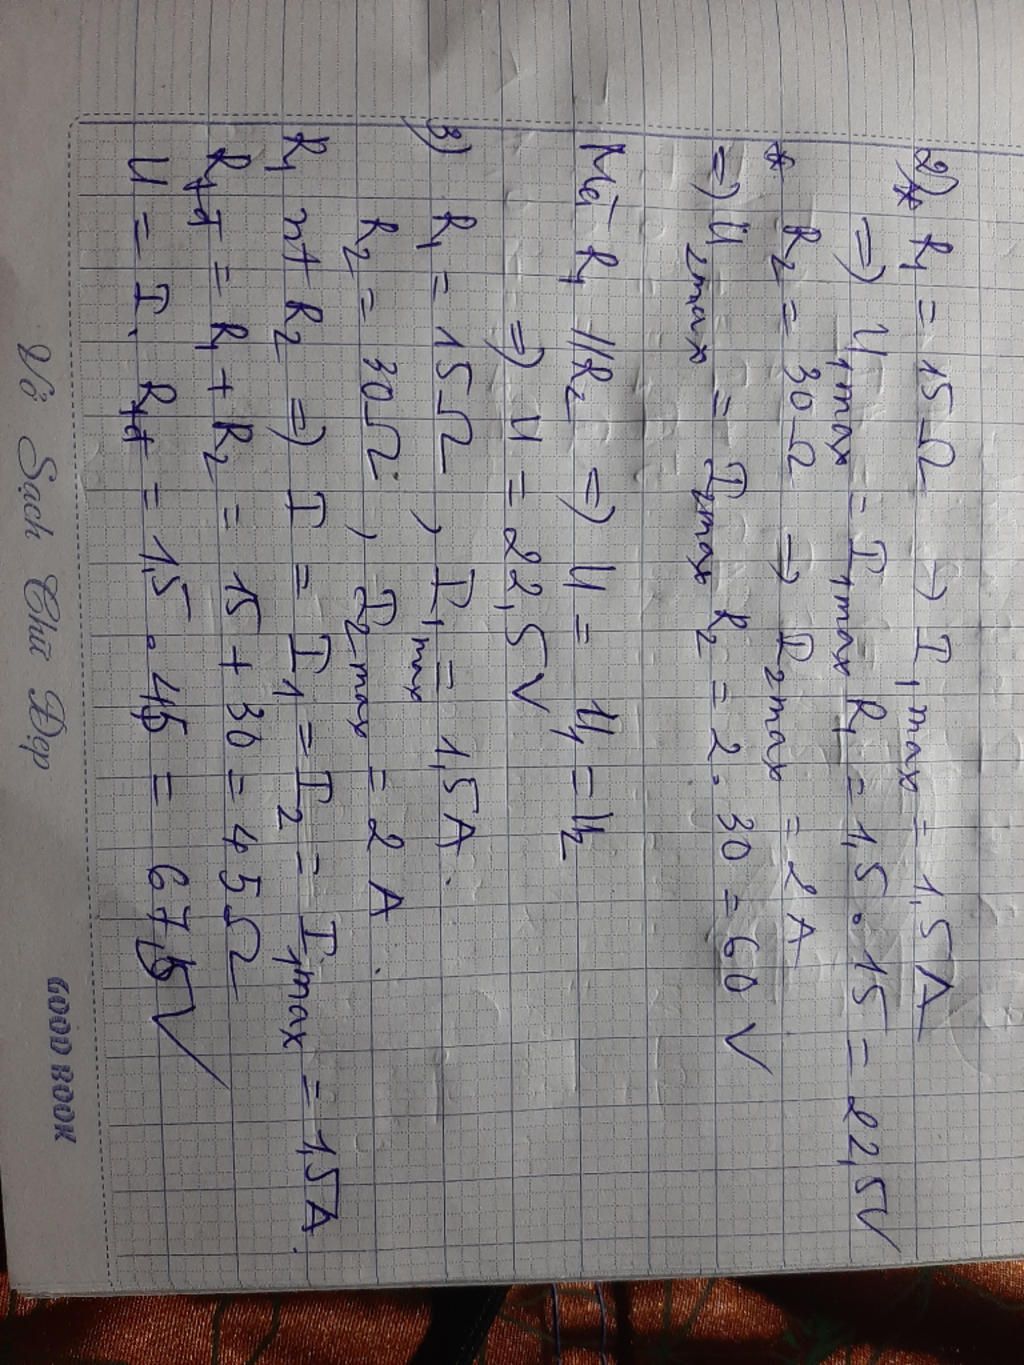 2) * R₁ = 15Ω → I₁max = 1,5A
=) U₁max = I₁max R₁ = 1,5 . 15 = 22,5V
* R₂ = 30Ω → I₂max = 2A
=) U₂max = I₂max R₂ = 2.30 = 60V
Mà R₁ // R₂ =) U = U₁ = U₂
=) U = 22,5V
3) R₁ = 15Ω , I₁max = 1,5A.
R₂ = 30Ω , I₂max = 2A.
R₁ nt R₂ =) I = I₁ = I₂ = I₁max = 1,5A.
Rtđ = R₁ + R₂ = 15 + 30 = 45Ω
U = I. Rtđ = 1,5 . 45 = 67,5V
Vở Sạch Chữ Đẹp
GOOD BOOK